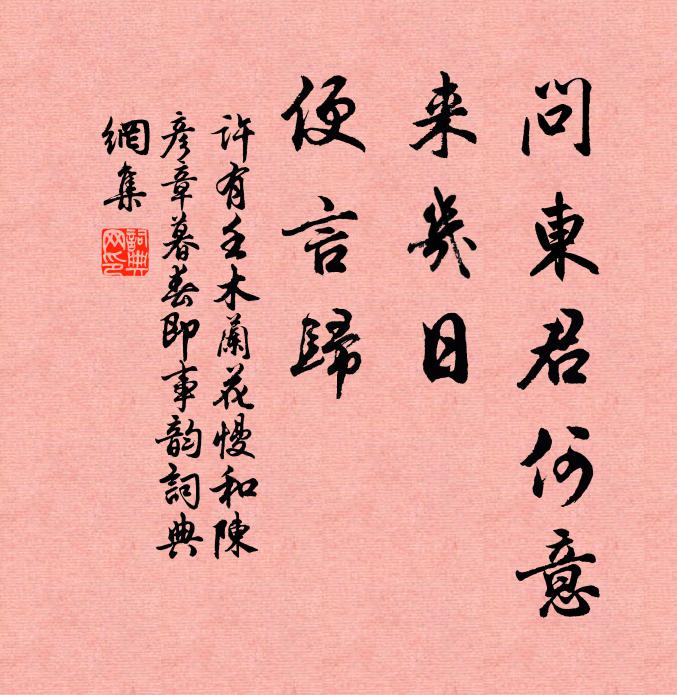 问東君何意
来幾日
便言歸
许有壬木蘭花慢和陳
彦章暮春即事韵詞典
網集
詞典
网印